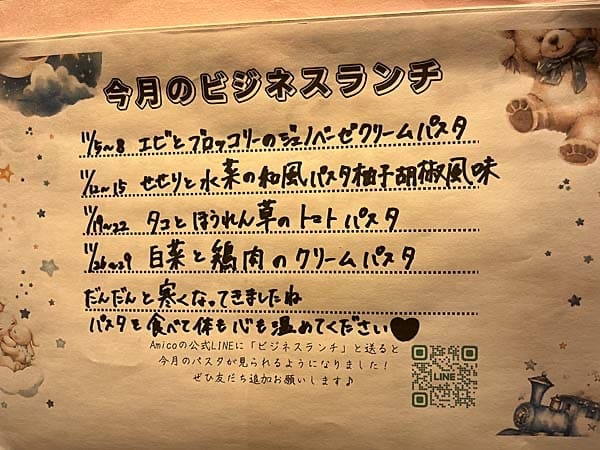 今月のビジネスランチ
11/5~8 エビとブロッコリーのジェノベーゼクリームパスタ
11/12~15 せせりと水菜の和風パスタ柚子胡椒風味
11/19~22 タコとほうれん草のトマトパスタ
11/26~29 白菜と鶏肉のクリームパスタ
だんだんと寒くなってきましたね
パスタを食べて体も心も温めてください♥
Amicoの公式LINEに「ビジネスランチ」と送ると
今月のパスタが見られるようになりました!
ぜひ友だち追加お願いします♪
LINE